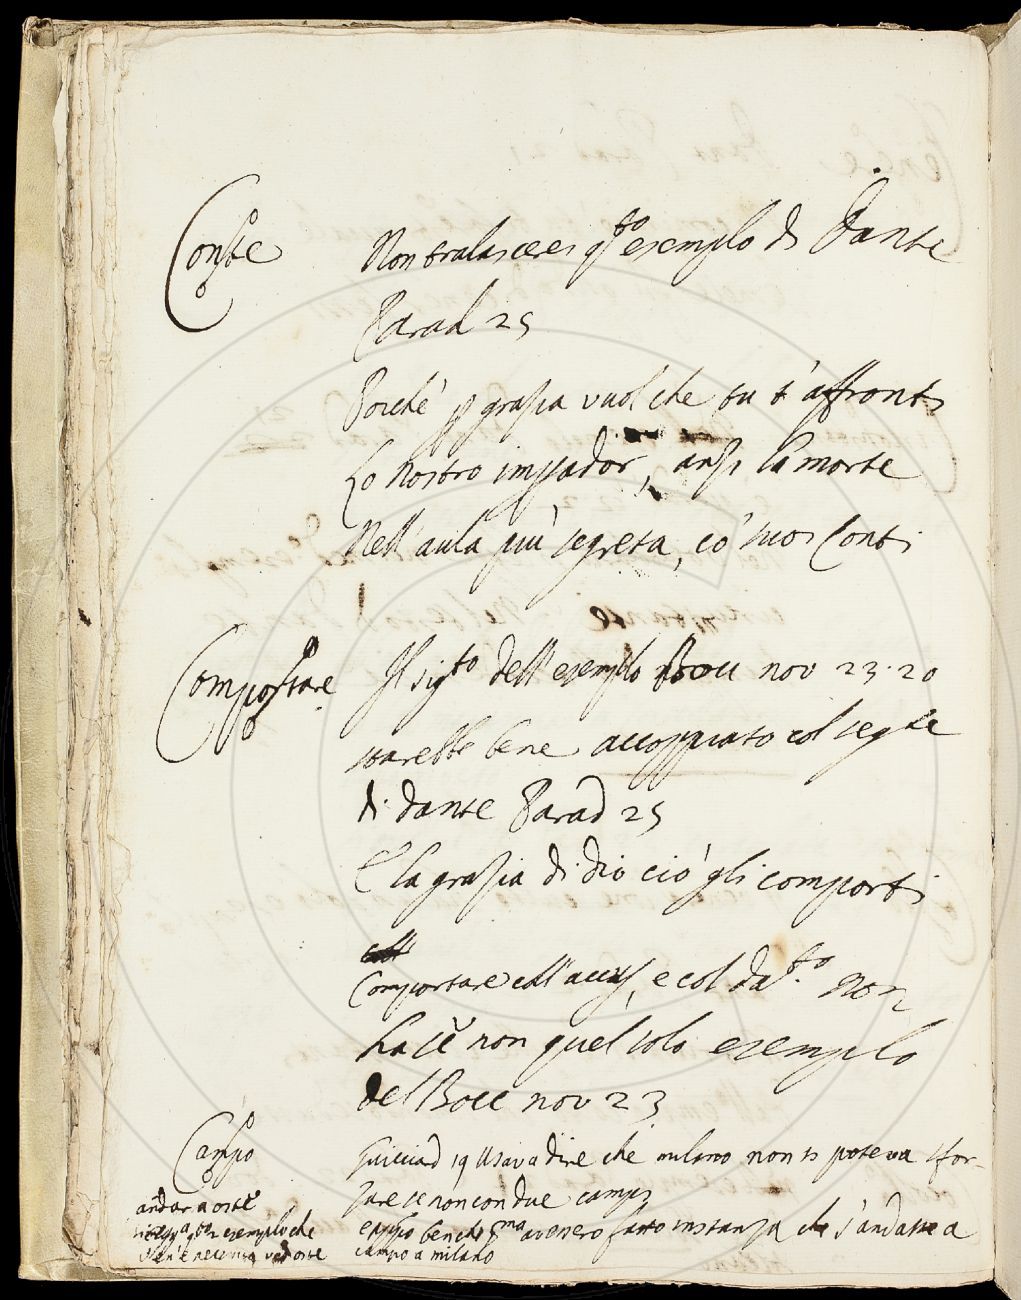 Conte
Non tralascerei q.to esemplo di Dante
Parad 25
Poiche' p grazia vuol che tu t'affronti
Lo nostro impador, anzi la morte
Nell'aula più segreta, co' suoi Conti
Comportare
Il sig.to dell'esemplo Bocc nov 23.20
starebbe bene accoppiato col seg.te
di dante Parad 25
E la grazia di dio ciò gli comporti
Comportare coll'accus, e col da.to non
ha se non quel solo esemplo
del Bocc nov 23
Campo
Guicciard 19 Usava dire che milano non si poteva sfor-
zare se non con due campi
andar a oste
esemplo che
e appo benche p.ma avessero fatto instanza che s'andasse a
campo a milano